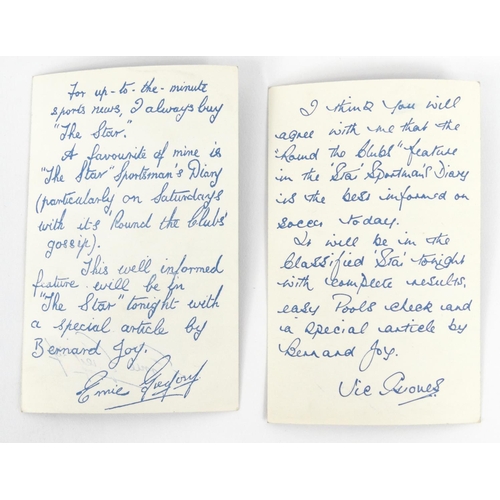 For up-to-the-minute
sports news, I always buy
"The Star."
A favourite of mine is
"The Star" Sportsman's Diary
(particularly on Saturdays
with it's 'Round the Clubs'
gossip).
This well informed
feature will be in
"The Star" tonight with
a special article by
Bernard Joy.
Ernie Gregory
I think you will
agree with me that the
"Round the Clubs" feature
in the 'Star' Sportman's Diary
is the best informed on
soccer today.
It will be in the
Classified 'Star' tonight
with complete results,
easy Pools check and
a special article by
Bernard Joy.
Vic Groves